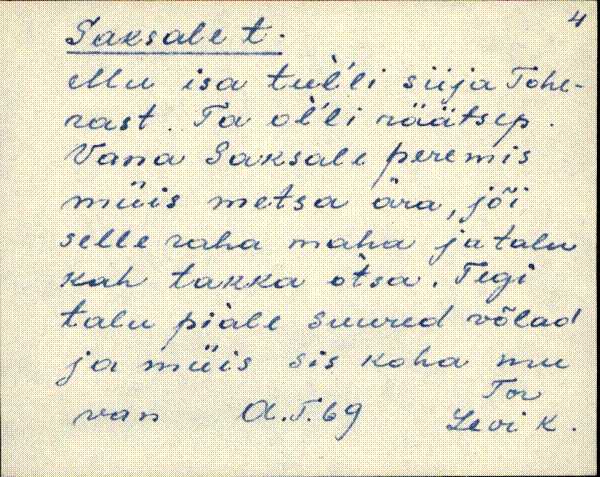 4
Saksale t.
Mu isa tul̀'li siija Tohe-
rast. Ta ol̀'li räätsep.
Vana Saksale peremis
müis metsa ära, jõi
selle raha maha ja talu
kah takka otsa. Tegi
talu piale suured võlad
ja müis sis koha mu
van A.T. 69 Tor
Levi k.